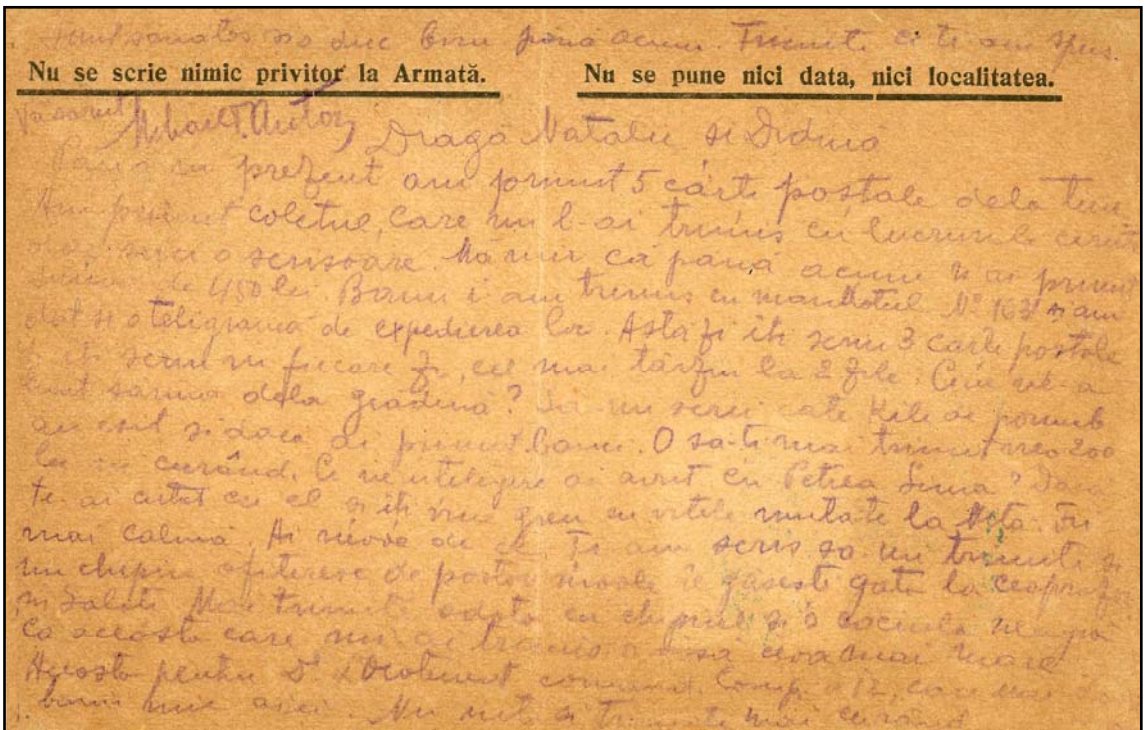 Sunt sanatos si o duc bine pana acum. Trimite ce ti-am spus.
Nu se scrie nimic privitor la Armată.
Nu se pune nici data, nici localitatea.
Va sarut
Dragă Natalie si Didină
Pana in prezent am primit 5 cărti postale dela tine
Am primit coletul, care mi l-ai trimis cu lucrurile cerute
si o scrisoare. Mă mir că până acum n-ai primit
de 450 lei. Banii i-am trimis cu mandatul No 163 si am
dat si o teligramă de expedierea lor. Astazi iti scriu 3 carti postale
iti scriu in fiecare zi, cel mai târziu la 2 zile. Cine
sârma dela grădină? Sa-mi scrii cate Kile de porumb
au esit si daca ai primit banii. O sa-ti mai trimit vreo 200
lei in curând. Ce neintelegere ai avut cu Petrea Dacă
te-ai certat cu el si iti vine greu cu vitele Fii
mai calmă. Ai nevoe de el. Ti-am scris sa-mi trimiti si
un chipiu ofiteresc de postav gasesti gata la
in Mai trimite odata cu chipiul si o caciula neagra
Ca aceasta care mi-ai trimis insa ceva mai mare
Aceasta pentru Dl comand. Comp. a 12, care
bani aici. Nu uita si trimite mai curând